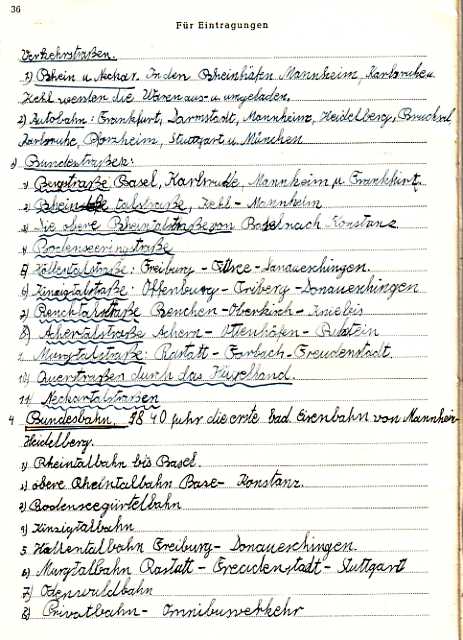 36
Für Eintragungen
Verkehrstraßen.
1) Rhein u Neckar. In den Rheinhäfen Mannheim, Karlsruhe u
Kehl werden die Waren aus- u umgeladen.
2) Autobahn: Frankfurt, Darmstadt, Mannheim, Heidelberg, Bruchsal
Karlsruhe, Pforzheim, Stuttgart u München
3) Bundestraßen:
1) Bergstraße Basel, Karlsruhe, Mannheim u Frankfurt.
2) Rheintalstraße, Kehl - Mannheim
3) Die obere Rheintalstraße von Basel nach Konstanz
4) Bodenseeringstraße
5) Höllentalstraße: Freiburg - Titisee - Donaueschingen.
6) Kinzigtalstaße: Offenburg - Triberg - Donaueschingen
7) Renchtalstraße Renchen - Oberkirch - Kniebis
8) Achertalstraße Achern - Ottenhöfen - Ruhstein
9. Murgtalstraße: Rastatt - Forbach - Freudenstadt.
10) Querstraßen durch das Hügelland.
11) Neckartalstraßen
4 Bundesbahn. 1840 fuhr die erste Bad. Eisenbahn von Mannheim
Heidelberg.
1) Rheintalbahn bis Basel.
2) obere Rheintalbahn Base- Konstanz.
3) Bodenseegürtelbahn
4) Kinzigtalbahn
5. Höllentalbahn Freiburg - Donaueschingen.
6) Murgtalbahn Rastatt - Freudenstadt - Stuttgart
7) Odenwaldbahn
8) Privatbahn - Omnibusverkehr